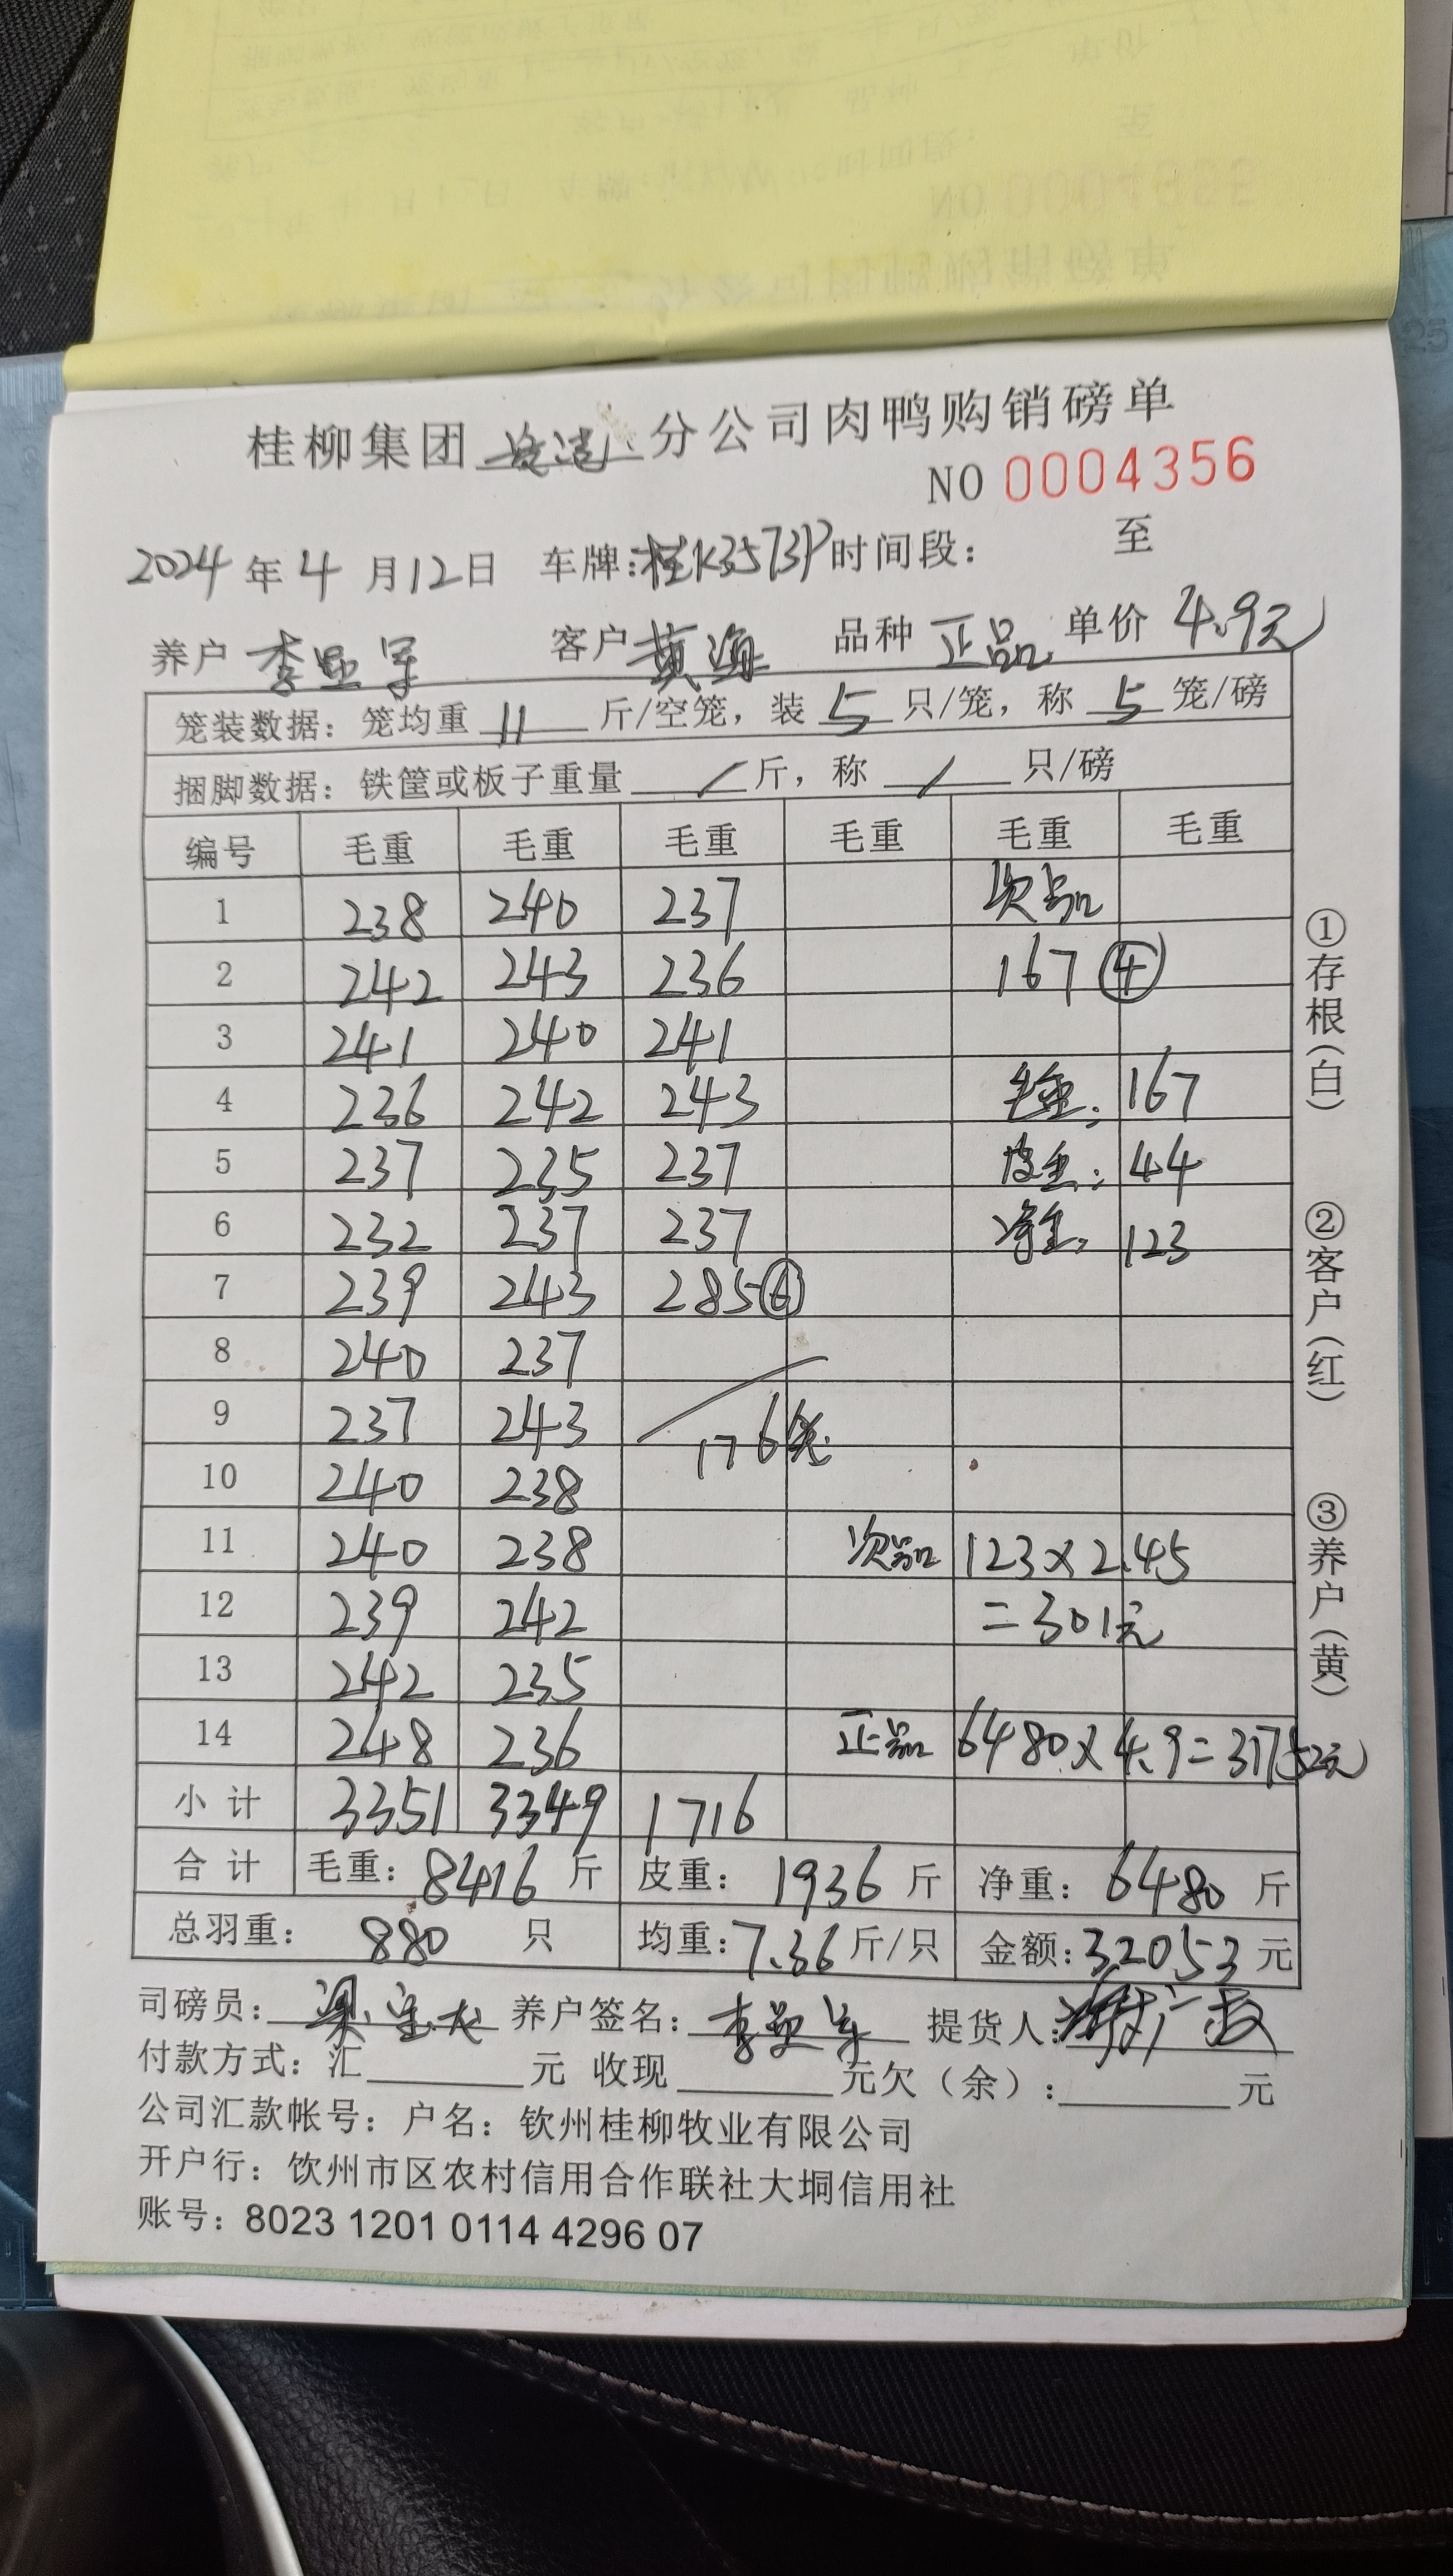 桂柳集团 分公司肉鸭购销磅单
NO 0004356
2024年4月12日 车牌:桂K3573P 时间段: 至
养户 李显军 客户 黄海 品种 正品 单价 4.9元
笼装数据:笼均重 11 斤/空笼,装 5 只/笼,称 5 笼/磅
捆脚数据:铁筐或板子重量 / 斤,称 / 只/磅
编号 毛重 毛重 毛重 毛重 毛重 毛重
1 238 240 237 次品
2 242 243 236 167 ④
3 241 240 241
4 236 242 243 毛重: 167
5 237 235 237 皮重: 44
6 232 237 237 净重: 123
7 239 243 285 ⑥
8 240 237
9 237 243 176笼
10 240 238
11 240 238 次品 123×2.45
12 239 242 =301元
13 242 235
14 248 236 正品 6480×4.9=31752元
小计 3351 3349 1716
合计 毛重: 8416 斤 皮重: 1936 斤 净重: 6480 斤
总羽重: 880 只 均重: 7.36 斤/只 金额: 32053 元
司磅员: 养户签名: 李显军 提货人:
付款方式:汇 元 收现 元欠(余): 元
公司汇款帐号:户名:钦州桂柳牧业有限公司
开户行:饮州市区农村信用合作联社大垌信用社
账号:8023 1201 0114 4296 07
①存根(白)
②客户(红)
③养户(黄)